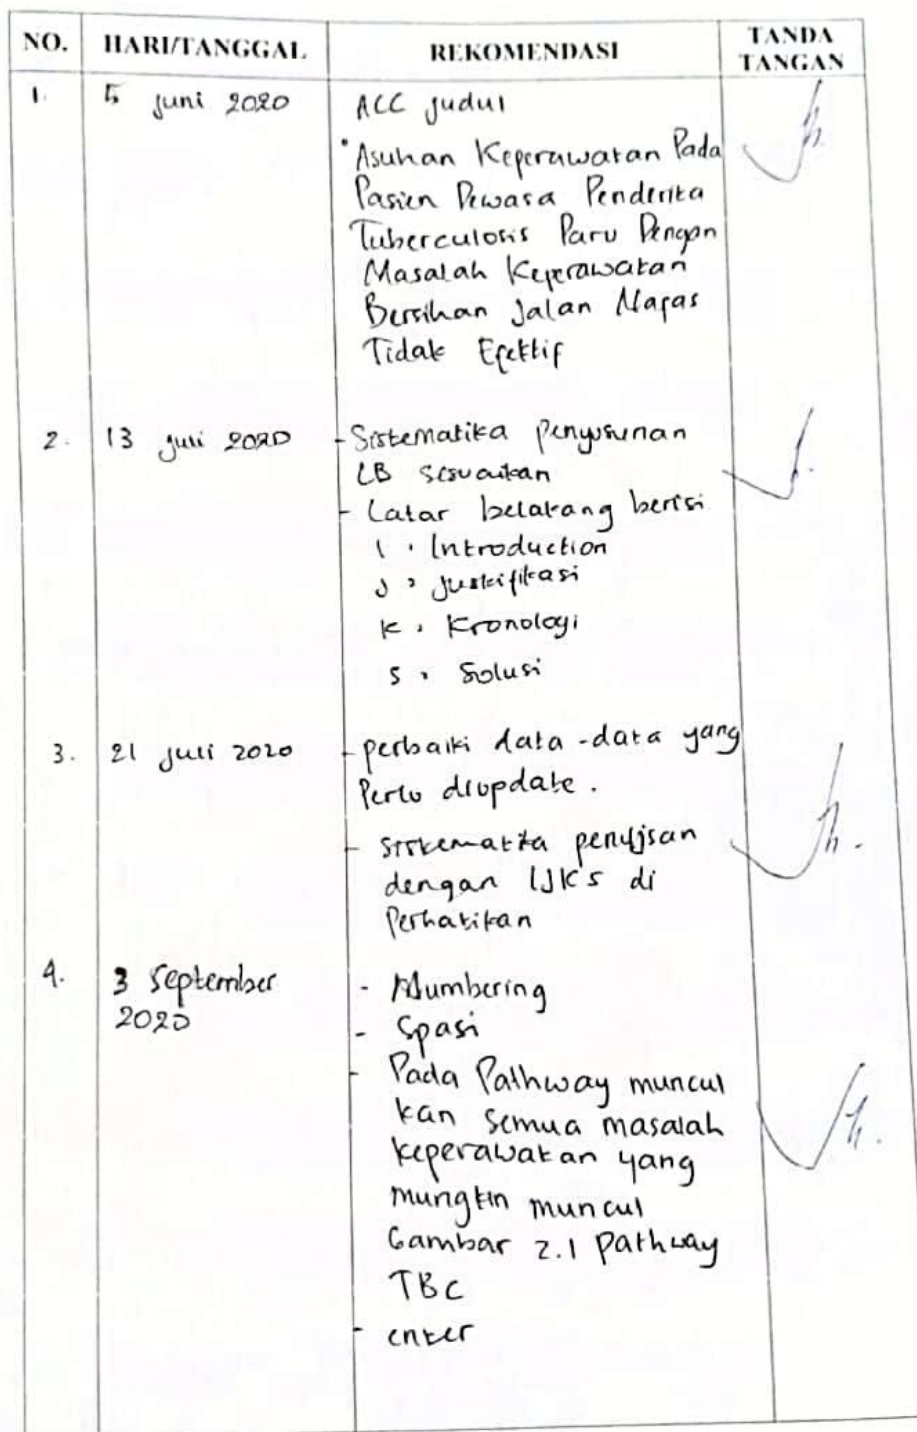 NO. HARI/TANGGAL REKOMENDASI TANDA TANGAN
1. 5 juni 2020 ACC judul
"Asuhan Keperawatan Pada
Pasien Dewasa Penderita
Tuberculosis Paru Dengan
Masalah Keperawatan
Bersihan Jalan Nafas
Tidak Efektif
2. 13 juli 2020 - Sistematika penyusunan
LB sesuaikan
- Latar belakang berisi
I : Introduction
J : Justifikasi
K : Kronologi
S : Solusi
3. 21 juli 2020 - perbaiki data-data yang
Perlu diupdate.
- sistematika penulisan
dengan IJKS di
Perhatikan
4. 3 September - Numbering
2020
- Spasi
- Pada Pathway muncul
kan semua masalah
keperawatan yang
mungkin muncul
Gambar 2.1 pathway
TBC
- enter